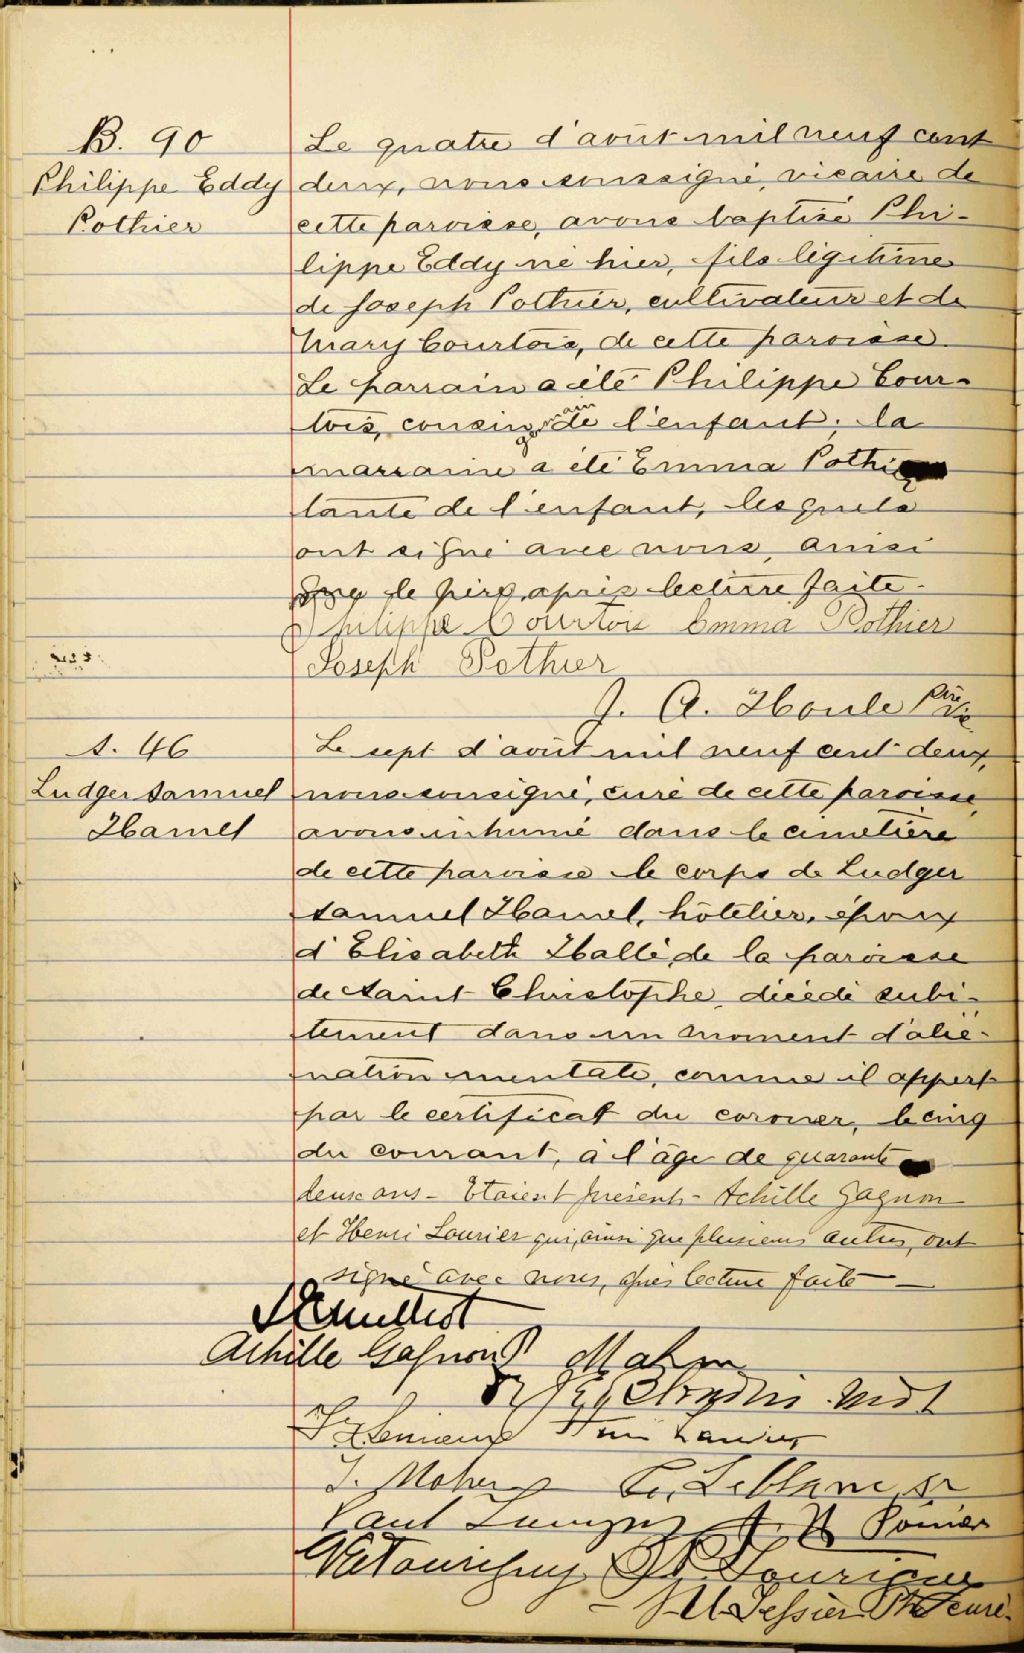 B. 90
Philippe Eddy
Pothier
Le quatre d'août mil neuf cent
deux, nous soussigné, vicaire de
cette paroisse, avons baptisé Phi-
lippe Eddy né hier, fils légitime
de Joseph Pothier, cultivateur et de
Mary Courtois, de cette paroisse.
Le parrain a été Philippe Cour-
tois, cousin germain de l'enfant; la
marraine a été Emma Pothier
tante de l'enfant, lesquels
ont signé avec nous, ainsi
que le père, après lecture faite.
Philippe Courtois Emma Pothier
Joseph Pothier
J. A. Houle Ptre Vic.
S. 46
Ludger Samuel
Hamel
Le sept d'août mil neuf cent deux,
nous soussigné, curé de cette paroisse,
avons inhumé dans le cimetière
de cette paroisse le corps de Ludger
Samuel Hamel, hôtelier, époux
d'Elisabeth Hallé, de la paroisse
de Saint Christophe, décédé subi-
tement dans un moment d'alié-
nation mentale, comme il appert
par le certificat du coroner, le cinq
du courant, à l'âge de quarante
deux ans - Etaient présents - Achille Gagnon
et Henri Laurier qui, ainsi que plusieurs autres, ont
signé avec nous, après lecture faite —
Achille Gagnon
Henri Laurier
C. Leblanc, sr
Paul Tourigny J. N. Poirier
Tourigny P. Tourigny
Tessier Ptre curé.